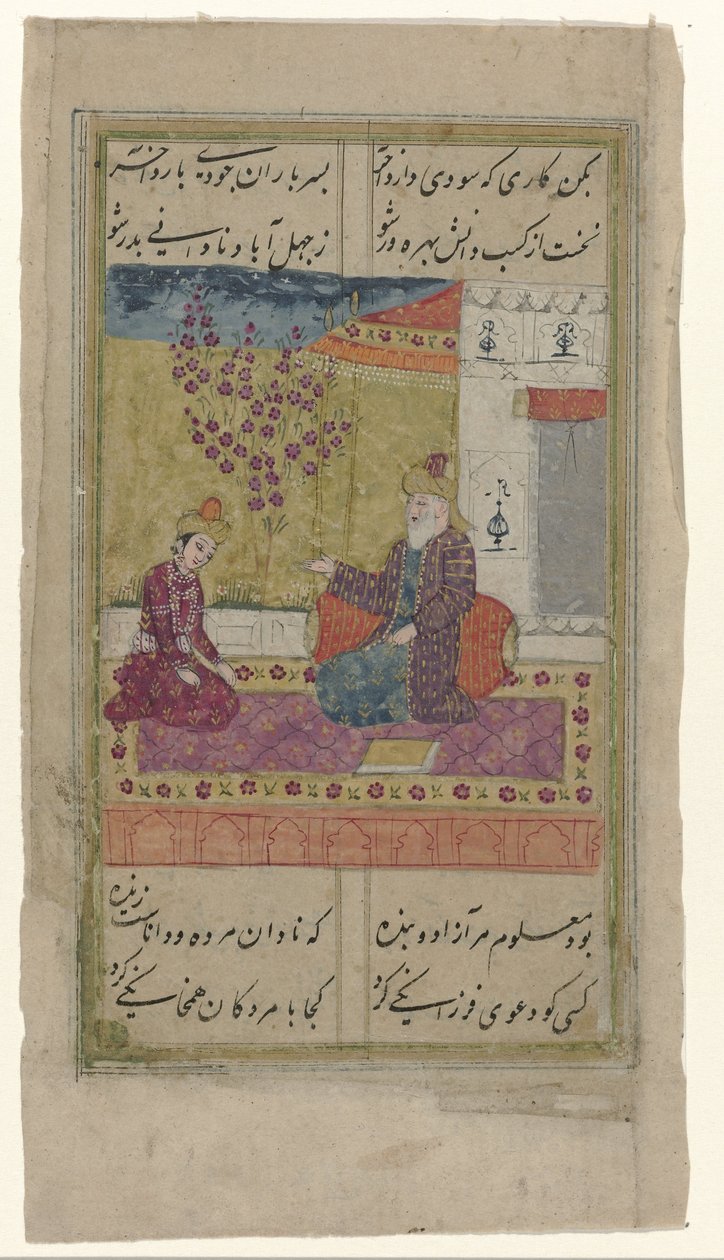 بکن کاری که سودی دارد آخر بسر باران جودی بارد آخر
نخست از کسب دانش بهره ور شو ز جهل آباد نادانی بدر شو
بود معلوم هر آزاد و بنده که نادان مرده و داناست زنده
کسی کو دعوی فرزانکی کرد کجا با مردکان همخانکی کرد